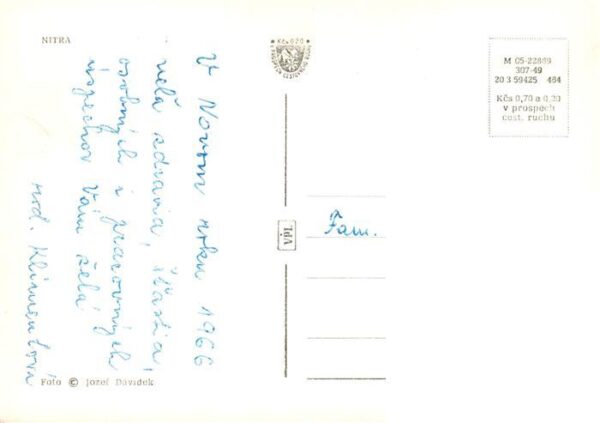 NITRA
V Novom roku 1966
veľa zdravia, šťastia,
osobných i pracovných
úspechov Vám želá
rod. Klimentová
Foto © Jozef Dávidek
Kčs 0,20
VPL
Fam.
M 05-22849
307-49
20 3 59425 464
Kčs 0,70 a 0,20
v prospech
cest. ruchu